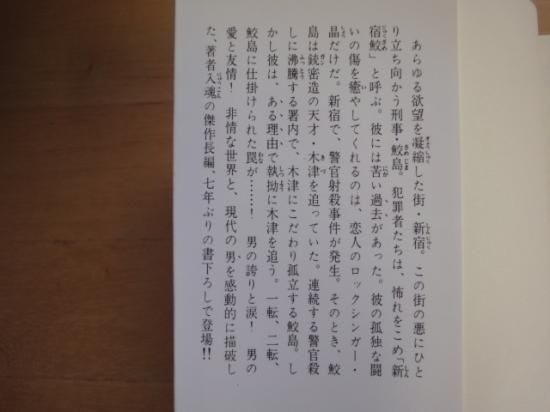 あらゆる欲望を凝縮した街・新宿。この街の悪にひと
り立ち向かう刑事・鮫島。犯罪者たちは、怖れをこめ「新
宿鮫」と呼ぶ。彼には苦い過去があった。彼の孤独な闘
いの傷を癒やしてくれるのは、恋人のロックシンガー・
晶だけだ。新宿で、警官射殺事件が発生。そのとき、鮫
島は銃密造の天才・木津を追っていた。連続する警官殺
しに沸騰する署内で、木津にこだわり孤立する鮫島。し
かし彼は、ある理由で執拗に木津を追う。一転、二転、
鮫島に仕掛けられた罠が………! 男の誇りと涙! 男の
愛と友情! 非情な世界と、現代の男を感動的に描破し
た、著者入魂の傑作長編、七年ぶりの書下ろしで登場!!